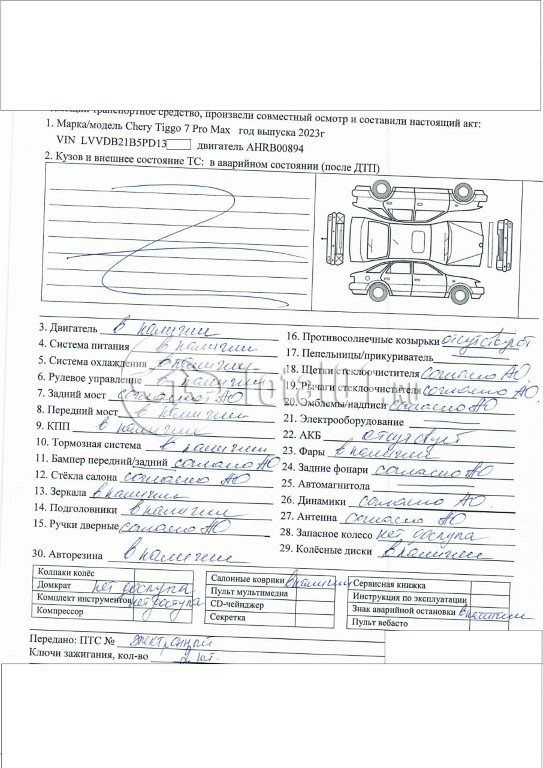 дующий транспортное средство, произвели совместный осмотр и составили настоящий акт:
1. Марка/модель Chery Tiggo 7 Pro Max год выпуска 2023г
VIN LVVDB21B5PD13 двигатель AHRB00894
2. Кузов и внешнее состояние ТС: в аварийном состоянии (после ДТП)
3. Двигатель в наличии
4. Система питания в наличии
5. Система охлаждения в наличии
6. Рулевое управление в наличии
7. Задний мост согласно АО
8. Передний мост в наличии
9. КПП в наличии
10. Тормозная система в наличии
11. Бампер передний/задний согласно АО
12. Стёкла салона согласно АО
13. Зеркала в наличии
14. Подголовники в наличии
15. Ручки дверные согласно АО
16. Противосолнечные козырьки отсутствует
17. Пепельницы/прикуриватель
18. Щетки стеклоочистителя согласно АО
19. Рычаги стеклоочистителя согласно АО.
20. Эмблемы/надписи согласно АО
21. Электрооборудование
22. АКБ отсутствует
23. Фары в наличии
24. Задние фонари согласно АО
25. Автомагнитола
26. Динамики согласно АО.
27. Антенна согласно АО
28. Запасное колесо нет доступа
29. Колёсные диски в наличии
30. Авторезина в наличии
Колпаки колёс
Домкрат нет доступа
Комплект инструментов нет доступа
Компрессор
Салонные коврики в наличии
Пульт мультимедиа
CD-чейнджер
Секретка
Сервисная книжка
Инструкция по эксплуатации
Знак аварийной остановки в наличии
Пульт вебасто
Передано: ПТС № электронный
Ключи зажигания, кол-во 2 шт.